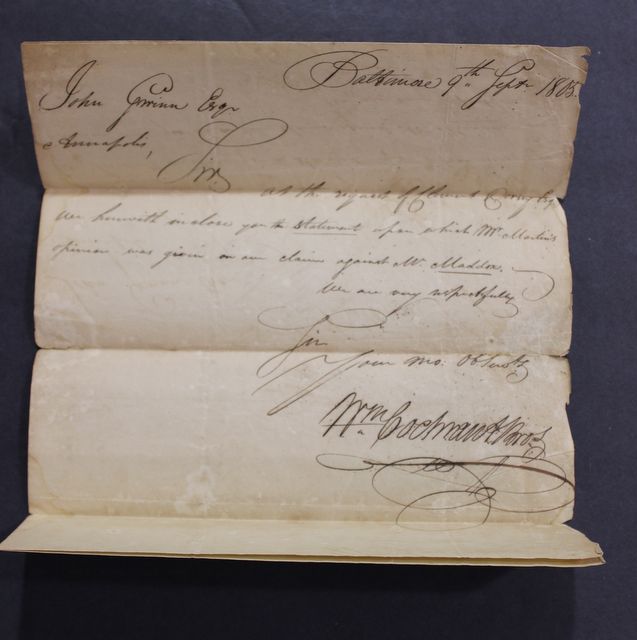 Baltimore 9th Sept. 1805.
John Gwinn Esqr
Annapolis,
Sir.
at the request of Clement Esq
we herewith inclose you the statement upon which Mr Martin's
opinion was given on our claim against Mr Maddox.
We are very respectfully
Sir
Your mo: Obt Servts
Wm Cochran & Bros